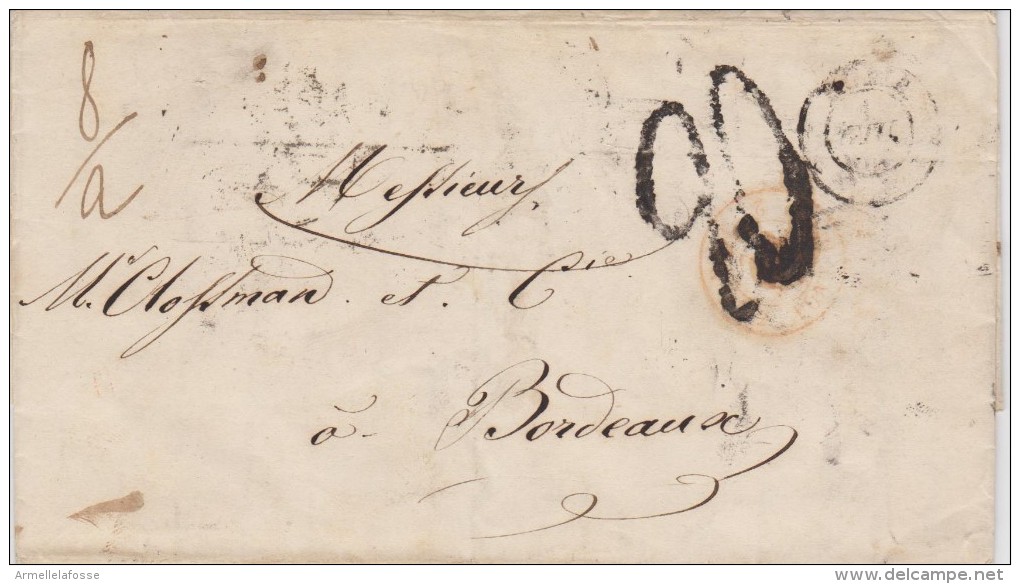 8
a
Messieurs
Mc Clossman et Cie
à Bordeaux
Armellelafosse
www.delcampe.net